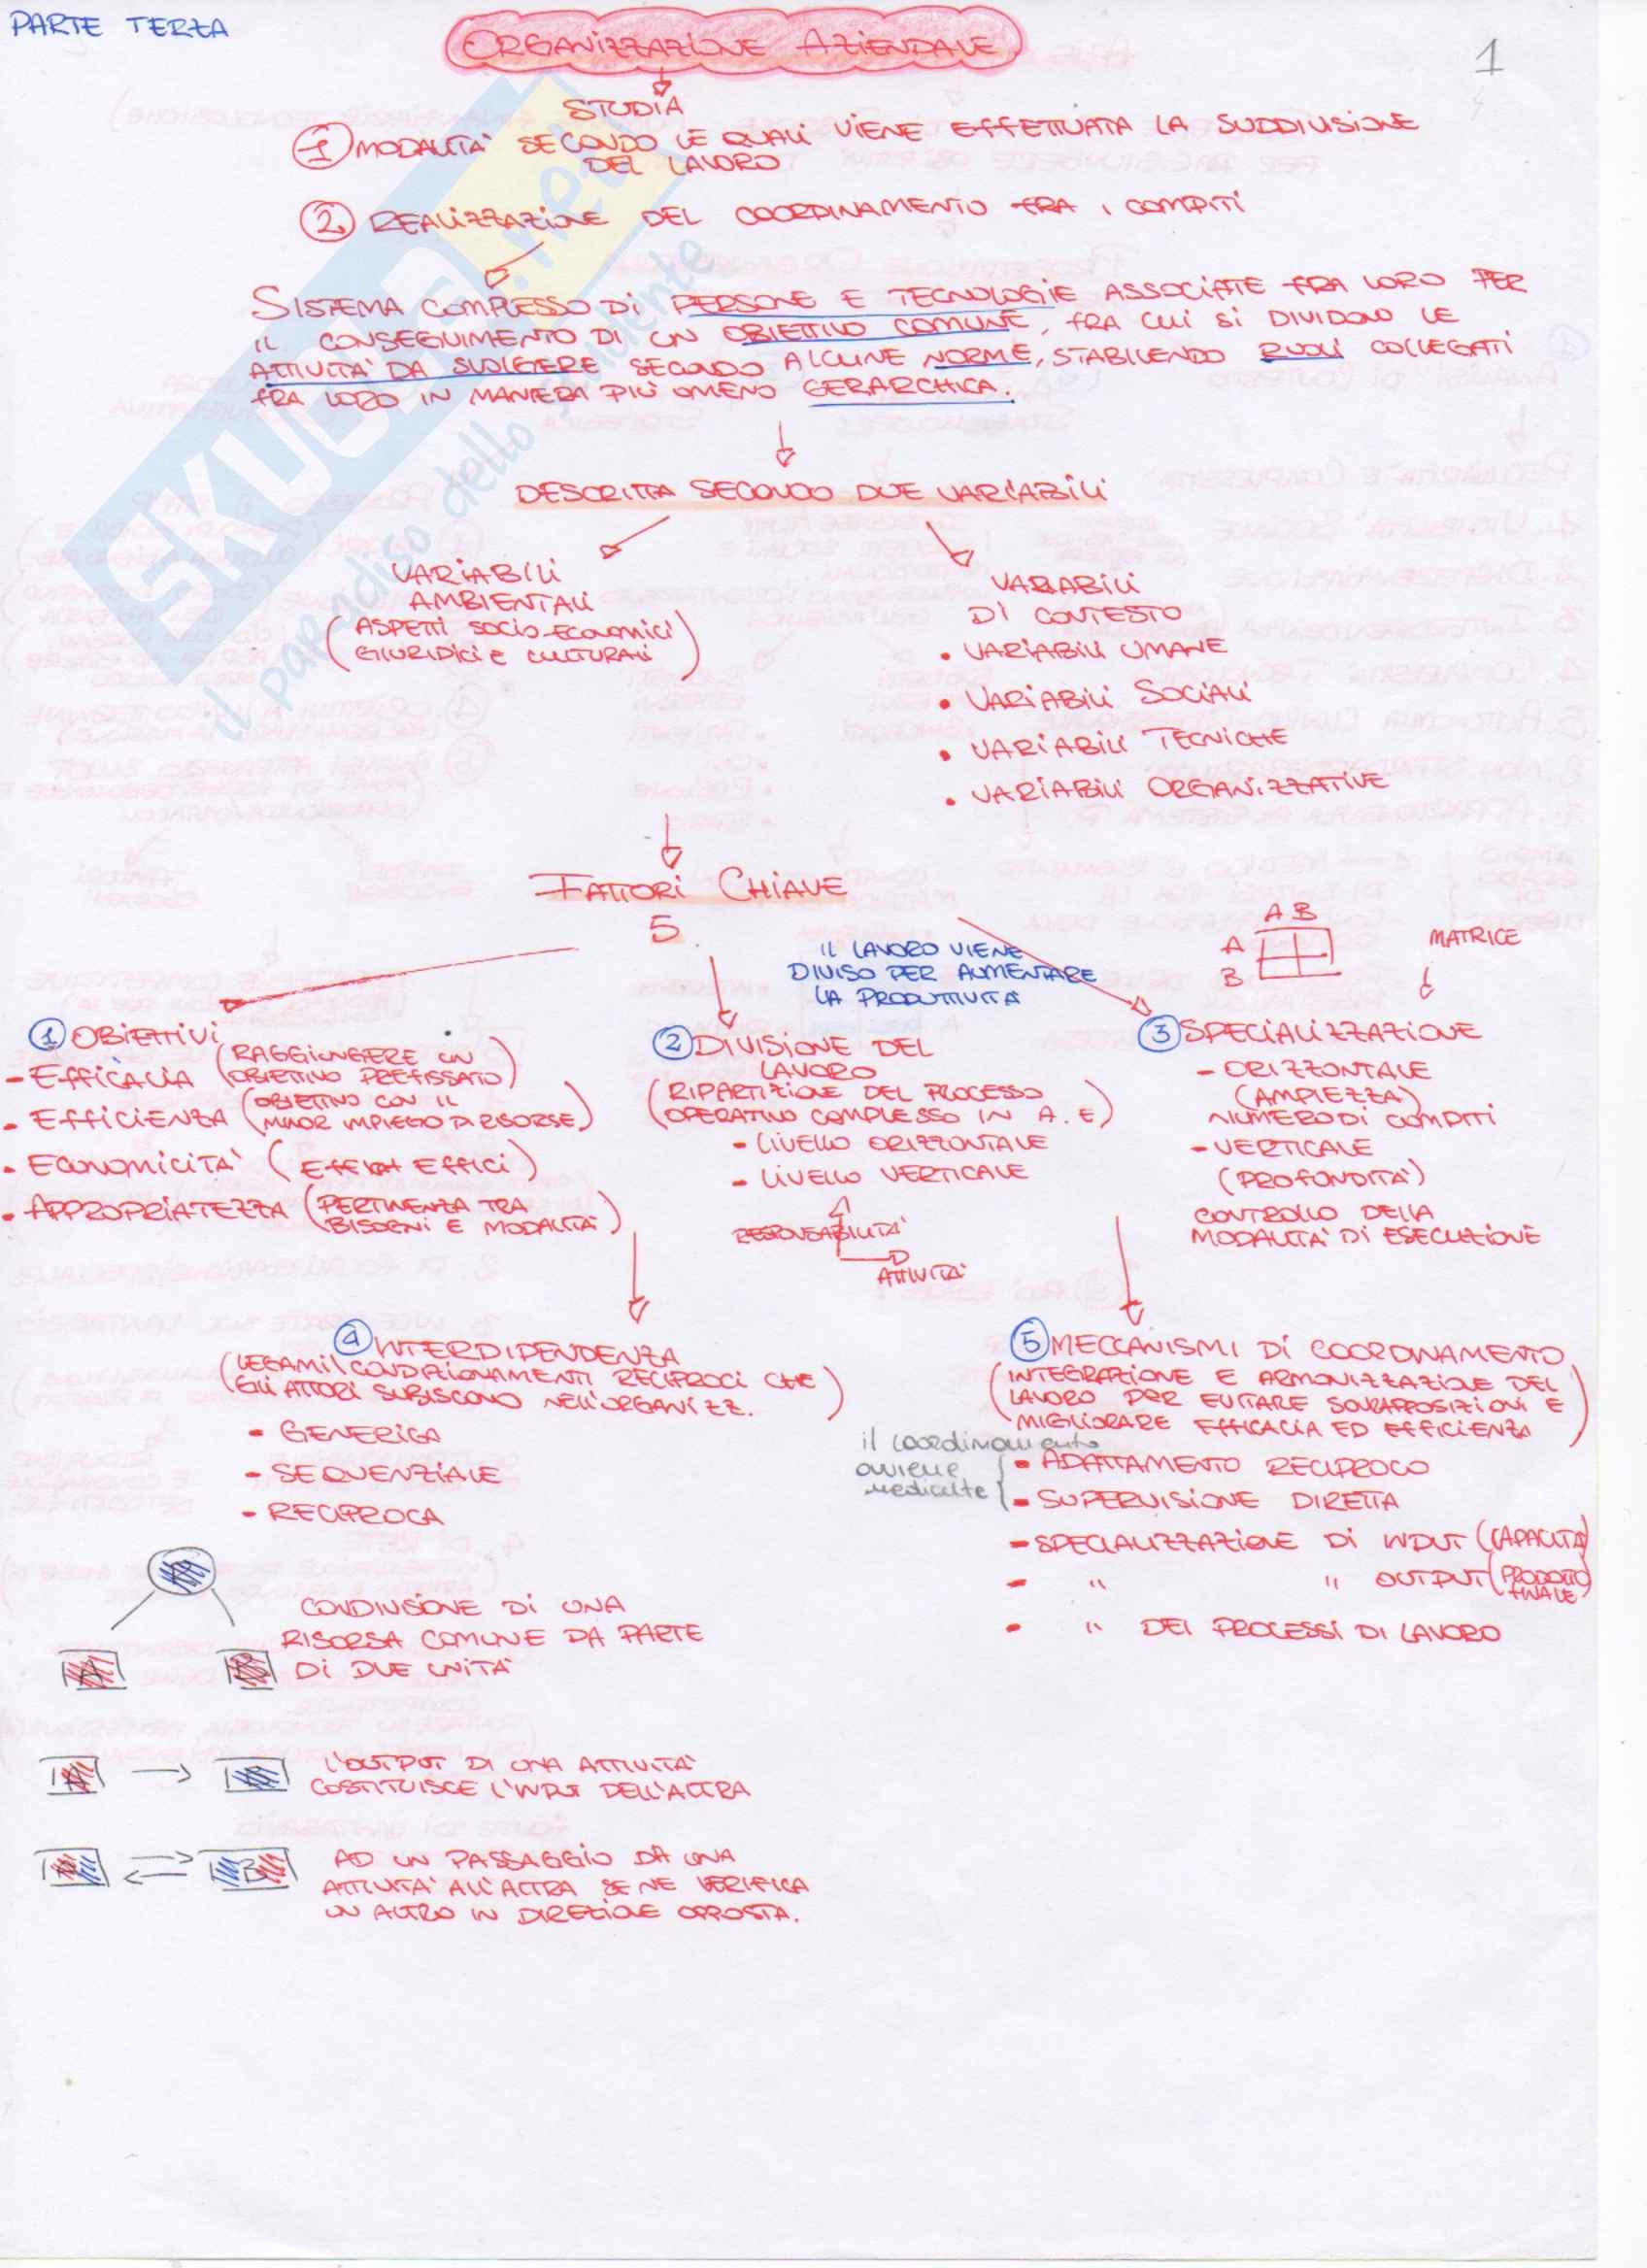 PARTE TERZA
ORGANIZZAZIONE AZIENDALE
1
STUDIA
1 MODALITA' SECONDO LE QUALI VIENE EFFETTUATA LA SUDDIVISIONE
DEL LAVORO
2 REALIZZAZIONE DEL COORDINAMENTO TRA I COMPITI
SISTEMA COMPLESSO DI PERSONE E TECNOLOGIE ASSOCIATE FRA LORO PER
IL CONSEGUIMENTO DI UN OBIETTIVO COMUNE, FRA CUI SI DIVIDONO LE
ATTIVITA' DA SVOLGERE SECONDO ALCUNE NORME, STABILENDO RUOLI COLLEGATI
FRA LORO IN MANIERA PIÙ O MENO GERARCHICA.
DESCRITTA SECONDO DUE VARIABILI
VARIABILI
AMBIENTALI
(ASPETTI SOCIO-ECONOMICI
GIURIDICI E CULTURALI)
VARIABILI
DI CONTESTO
• VARIABILI UMANE
• VARIABILI SOCIALI
• VARIABILI TECNICHE
• VARIABILI ORGANIZZATIVE
FATTORI CHIAVE
5
IL LAVORO VIENE
DIVISO PER AUMENTARE
LA PRODUTTIVITÀ
A B
A
B
MATRICE
1 OBIETTIVI
- EFFICACIA (RAGGIUNGERE UN
OBIETTIVO PREFISSATO)
- EFFICIENZA (OBIETTIVO CON IL
MINOR IMPIEGO DI RISORSE)
- ECONOMICITA' (EFFICI+ EFFICI)
- APPROPRIATEZZA (PERTINENZA TRA
BISOGNI E MODALITÀ)
2 DIVISIONE DEL
LAVORO
(RIPARTIZIONE DEL PROCESSO
OPERATIVO COMPLESSO IN A. E)
- LIVELLO ORIZZONTALE
- LIVELLO VERTICALE
RESPONSABILITA'
ATTIVITA'
3 SPECIALIZZAZIONE
- ORIZZONTALE
(AMPIEZZA)
NUMERO DI COMPITI
- VERTICALE
(PROFONDITA')
CONTROLLO DELLA
MODALITA' DI ESECUZIONE
4 INTERDIPENDENZA
(LEGAMI\CONDIZIONAMENTI RECIPROCI CHE
GLI ATTORI SUBISCONO NELL'ORGANIZZ.)
- GENERICA
- SEQUENZIALE
- RECIPROCA
5 MECCANISMI DI COORDINAMENTO
(INTEGRAZIONE E ARMONIZZAZIONE DEL
LAVORO PER EVITARE SOVRAPPOSIZIONI E
MIGLIORARE EFFICACIA ED EFFICIENZA)
il coordinamento
avviene
mediante
- ADATTAMENTO RECIPROCO
- SUPERVISIONE DIRETTA
- SPECIALIZZAZIONE DI INPUT (CAPACITÀ)
- " " OUTPUT (PRODOTTO
FINALE)
- " DEI PROCESSI DI LAVORO
A B
CONDIVISIONE DI UNA
RISORSA COMUNE DA PARTE
DI DUE UNITÀ
A B
L'OUTPUT DI UNA ATTIVITÀ
COSTITUISCE L'INPUT DELL'ALTRA
A B
AD UN PASSAGGIO DA UNA
ATTIVITA' ALL'ALTRA SE NE VERIFICA
UN ALTRO IN DIREZIONE OPPOSTA.
SKUOLA.net
il paradiso dello studente